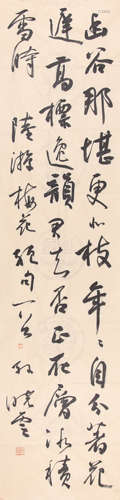 幽谷那堪更北枝年年自分著花
遲高標逸韻君知否正在層冰積
雪時 陸游梅花絕句一首